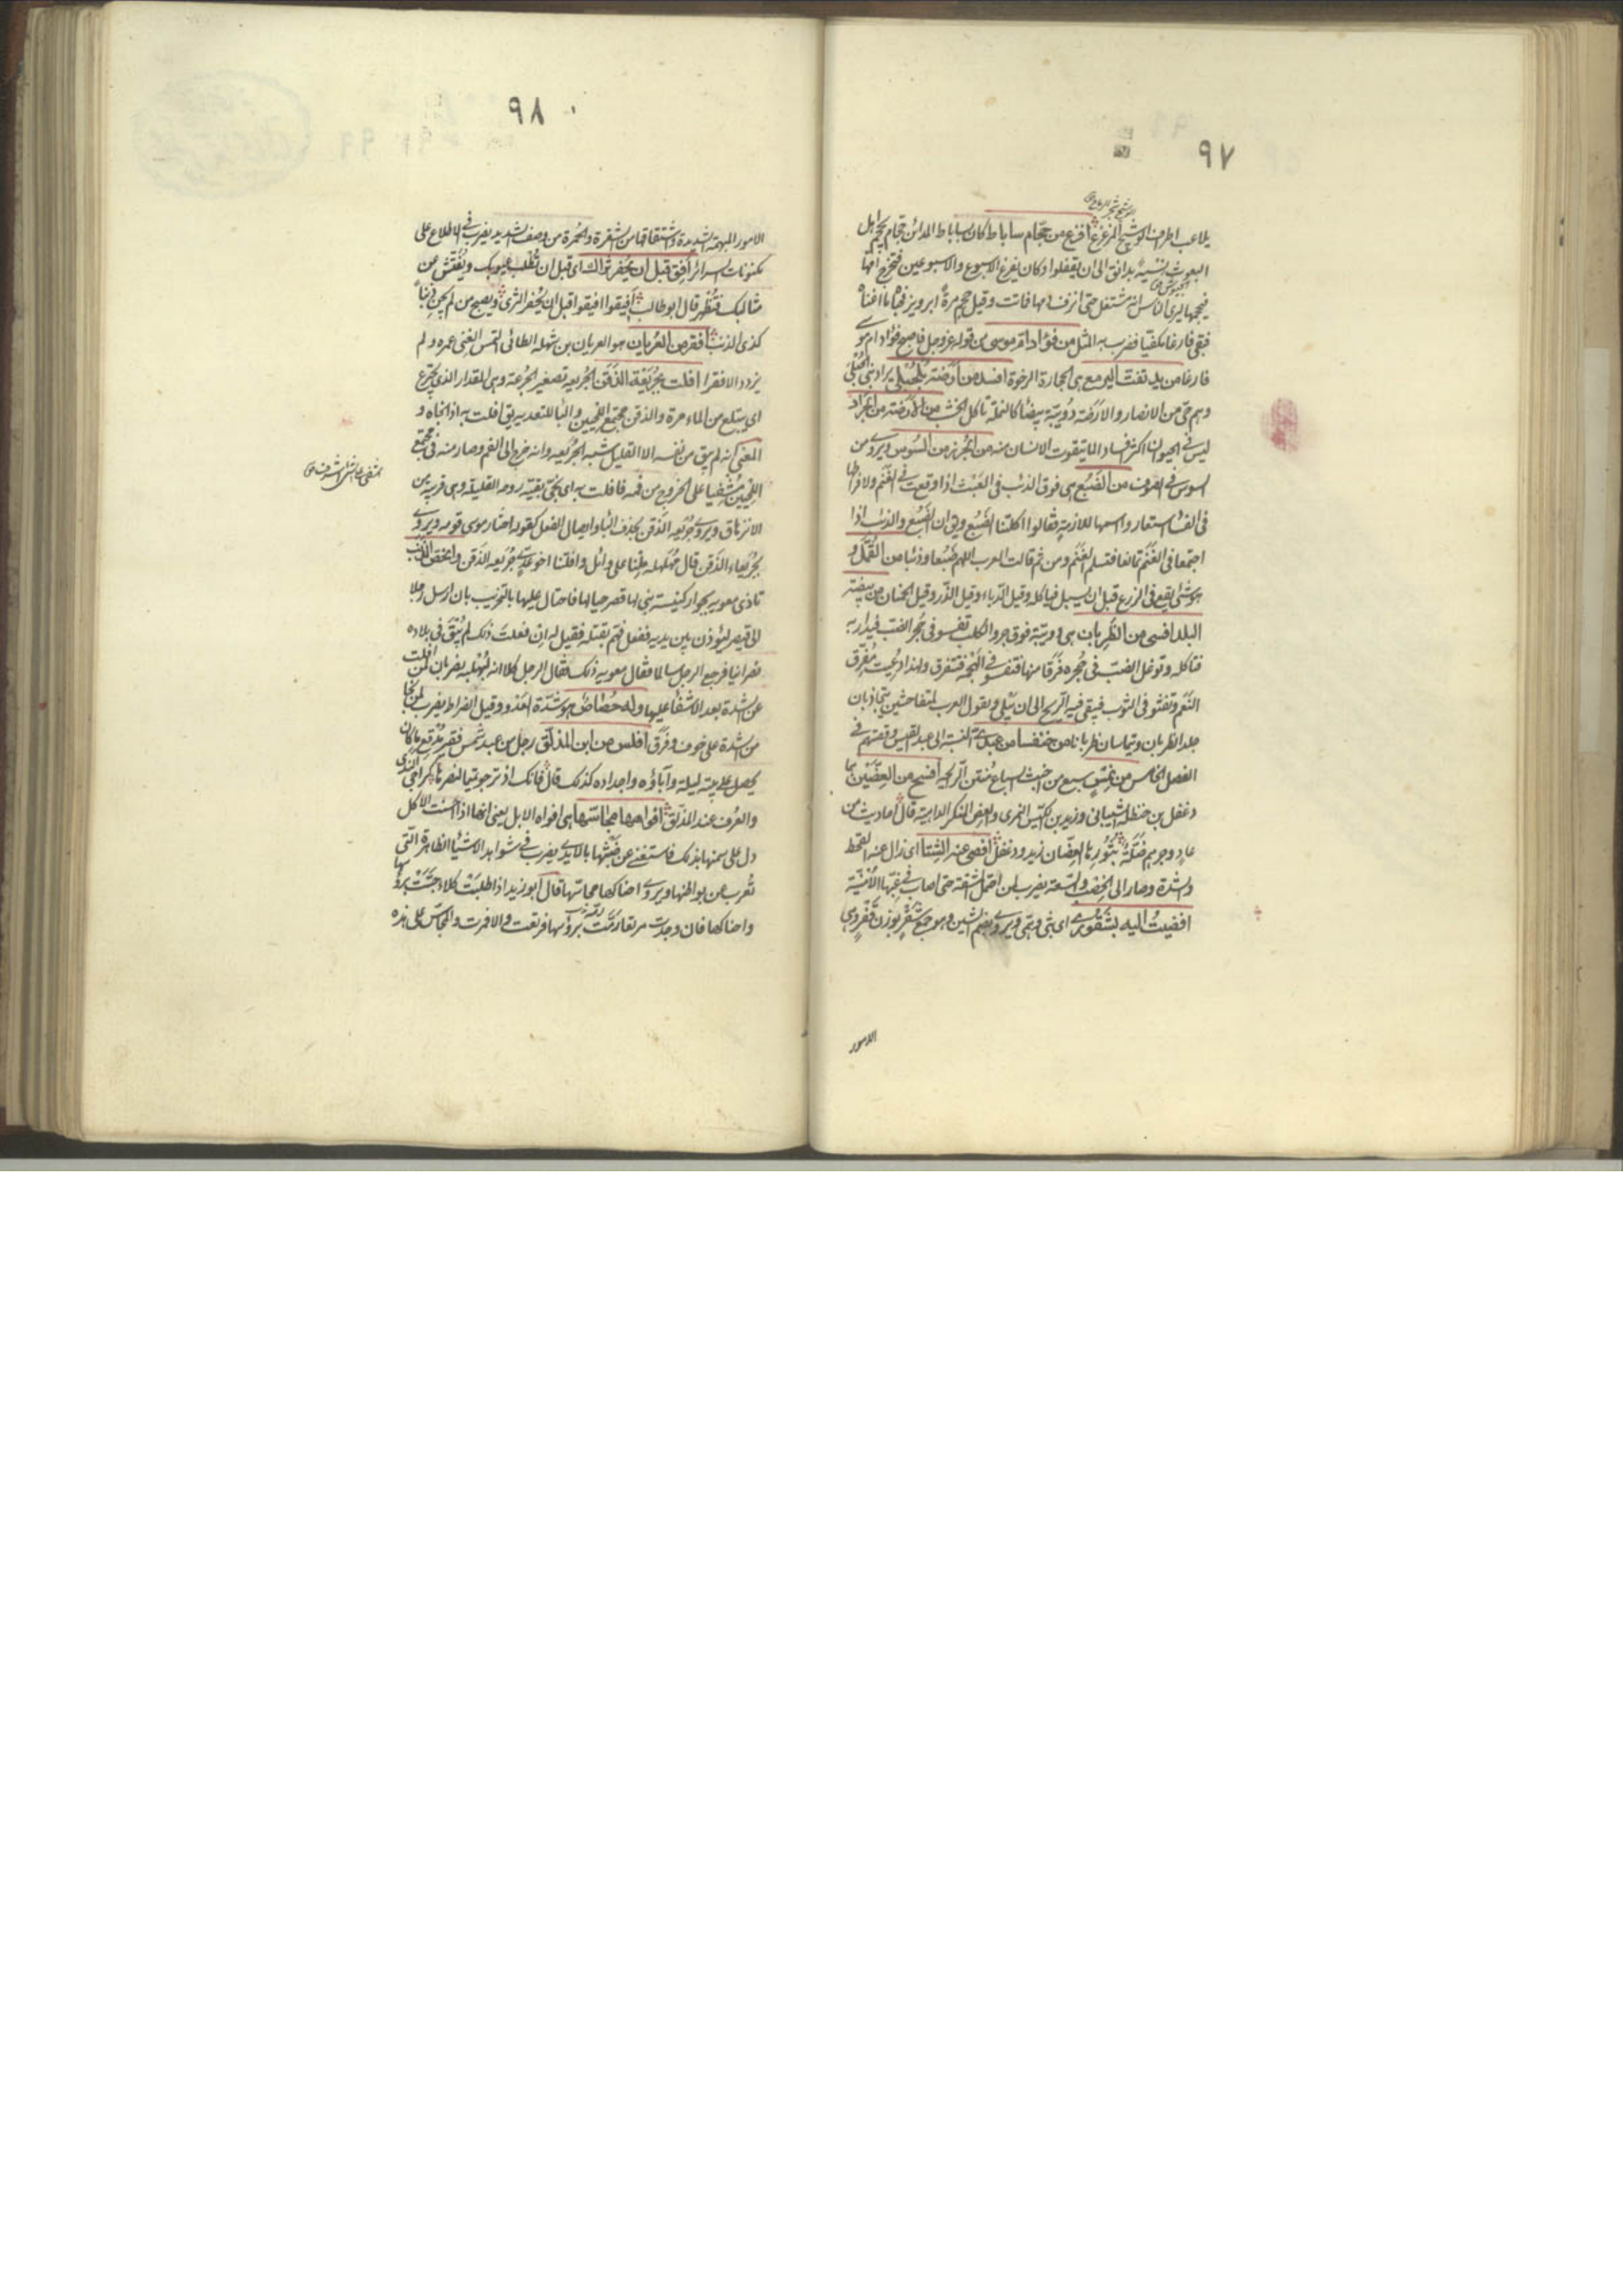 ٩٧
يلاعب اطراف الوشيج المزعزع افرغ من حجّام ساباط كان بساباط المدائن حجّام يحجم اهل
البعوث نسيئة بدانق الى ان يقفلوا وكان يفرغ الاسبوع والاسبوعين فتخرج امها
فيحجمها ليرى الناس انه مشتغل حتى انزف دمها فماتت وقيل حجم مرة ابرويز فحباه ما اغناه
فبقى فارغا مكفيا فضرب به المثل من فؤاد ام موسى من قوله عز وجل فاصبح فؤاد ام موسى
فارغا من يد تفت اليرمع هى الحجارة الرخوة افسد من ارضة بلحبلى يراد بنى الحبلى
وهم حى من الانصار والارضة دويبة بيضا كالنملة تاكل الخشب من الارضة من الجراد
ليس فى الحيوان اكثر فسادا لما يتقوت الانسان منه من الجرذ من السوس ويروى من
السوس فى الصوف من الضبع هى فوق الذئب فى العيث اذا وقعت فى الغنم ولافراطها
فى الفساد استعاروا اسمها للازمة فقالوا اكلتنا الضبع ويق ان الضبع والذئب اذا
اجتمعا فى الغنم تمانعا فتسلم الغنم ومن ثم قالت العرب اللهم ضبعا وذئبا من القمل و
هو شئ يقع فى الزرع قبل ان يسبل فياكله وقيل الدباء وقيل الذر وقيل الحمنان من بيضة
البلد افسى من الظربان هى دويبة فوق جرو الكلب تفسو فى جحر الضب فيدار به
فتاكله وتوغل الضب فى جحره فرقا منها وتفسو فى الهجمة فتتفرق ولهذا دعيت مفرق
النعم وتفسو فى الثوب فيبقى فيه الريح الى ان يبلى ويقول العرب للمتفاحشين يتجاذبان
جلد الظربان ويتماسان ظربانا من خنفسا من عبدى النسبة الى عبد القيس وقصتهم فى
الفصل الخامس من نمس سبع من اخبث السباع منتن الريح افصح من العضين هما
دغفل بن حنظلة الشيبانى وزيد بن الكيس النمرى والعض المنكر الداهية قال احاديث من
عاد وجرهم ضلة يثورها العضان زيد ودغفل افصى عنه الشتا اى زال عنه القحط
والشدة وصار الى الخفض والسعة يضرب لمن احتمل المشقة حتى اصاب فى غبها الامنية
افضيت اليه بشقورى اى بثى وهمى ويروى بضم الشين وهو جمع شقر بوزن قفر وهى
الامور
٩٨
الامور المهمة الشديدة واشتقاقها من الشقرة والحمرة من وصف الشديد يضرب فى الاطلاع على
مكنونات السرائر افق قبل ان يحفر ثراك اى قبل ان تقلب عيوبك ويفتش عن
مثالبك فتظهر قال ابو طالب افيقوا افيقوا قبل ان يحفر الثرى ويصبح من لم يجن ذنبا
كذى الذنب افقر من العريان هو العريان بن شهلة الطائى التمس الغنى عمره ولم
يزدد الا فقرا افلت بجريعة الذقن الجريعه تصغير الجرعة وهى المقدار الذى يجترع
اى يبتلع من الماء مرة والذقن مجتمع اللحيين والبا للتعديه يق افلت به اذا نجاه و
المعنى كانه لم يبق من نفسه الا القليل شبه الجريعه وانه خرج الى الفم وصار منه فى مجتمع
اللحيين مشفيا على الخروج من فمه فافلت به اى نجى بقية روحه القليلة وهى قريبه من
الانزهاق ويروى جريعه الذقن بحذف البا وايصال الفعل كقوله اختار موسى قومه ويروى
بجريعاء الذقن قال مهلهل ملنا على وائل وافلتنا اخو عدى جريعه الذقن وانحص الذنب
تاذى معويه بجوار كنيسة بنى لها قصر حيالها فاحتال عليها بالتخريب بان ارسل رجلا
الى قيصر ليؤذن بين يديه ففعل فهم بقتله فقيل له ان فعلت ذلك لم يبق فى بلاده
نصرانيا فرجع الرجل سالما فقال معويه ذلك فقال الرجل كلا انه لبهلبه يضربان لمن افلت
عن الشدة بعد الاشفا عليها وله حصاص هو شدة العدو وقيل الضراط يضرب لمن نجا
من الشدة على خوف وفرق افلس من ابن المذلق رجل من عبد شمس فقير مدقع ما كان
يحصل على بيتة ليلة وآباؤه واجداده كذلك قال فانك اذ ترجو تميما لنصرها كراجى الندى
والعرف عند المذلق افواهها مجاستها هى افواه الابل يعنى انها اذا احسنت الاكل
دل على سمنها بذلك فاستغنى عن جسها بالايدى يضرب فى شواهد الاشيا الظاهرة التى
تعرب عن بواطنها ويروى احناكها مجاستها قال ابو زيد اذا طلبت كلا جست برؤسها
واحناكها فان وجدت مرتعا رمت برؤسها فرتعت والا مرت والمجاس على هذه